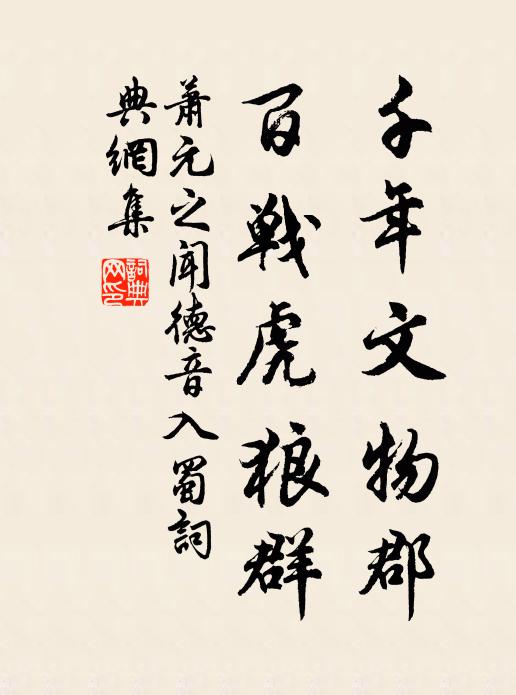 千年文物郡
百戰虎狼群
蕭元之聞德音入蜀詞
典網集
詞典
网印